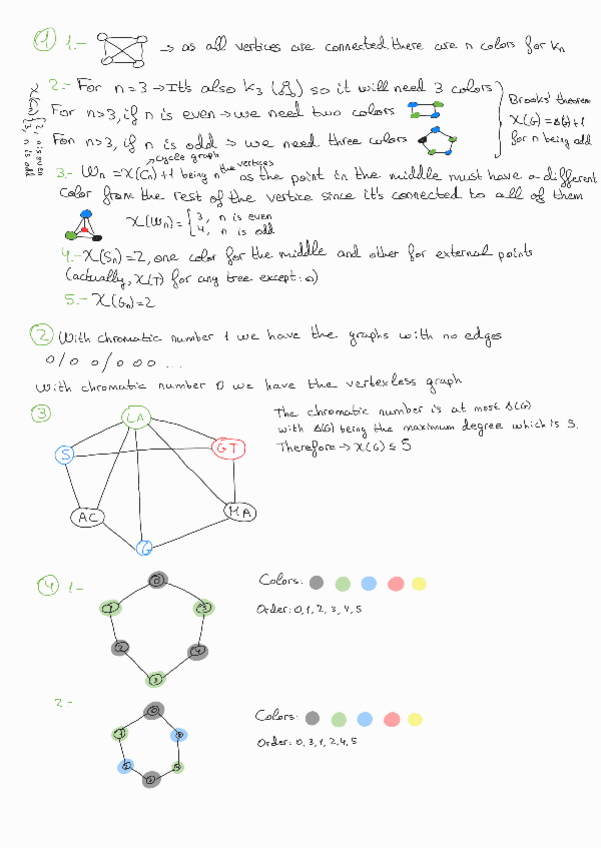 1 1.- → as all vertices are connected there are n colors for Kn
2.- For n=3 → It's also K3 so it will need 3 colors
For n>3, if n is even → we need two colors
For n>3, if n is odd → we need three colors
Brooks' theorem
χ(G) = Δ(G)+1
for n being odd
χ(Cn) { 2, n is even
3, n is odd
cycle graph
3.- Wn = χ(Cn)+1 being n the vertices as the point in the middle must have a different
color from the rest of the vertice since it's connected to all of them
χ(Wn) = { 3, n is even
4, n is odd
4.- χ(Sn)=2, one color for the middle and other for external points
(actually, χ(T) for any tree except: o)
5.- χ(Gn)=2
2 With chromatic number 1 we have the graphs with no edges
0 / 0 0 / 0 0 0 ...
With chromatic number 0 we have the vertexless graph
3
LA
S
GT
AC
MA
G
The chromatic number is at most Δ(G)
with Δ(G) being the maximum degree which is 5.
Therefore → χ(G) ≤ 5
4 1-
0
1
5
2
4
3
Colors:
Order: 0, 1, 2, 3, 4, 5
2-
Colors:
Order: 0, 3, 1, 2, 4, 5